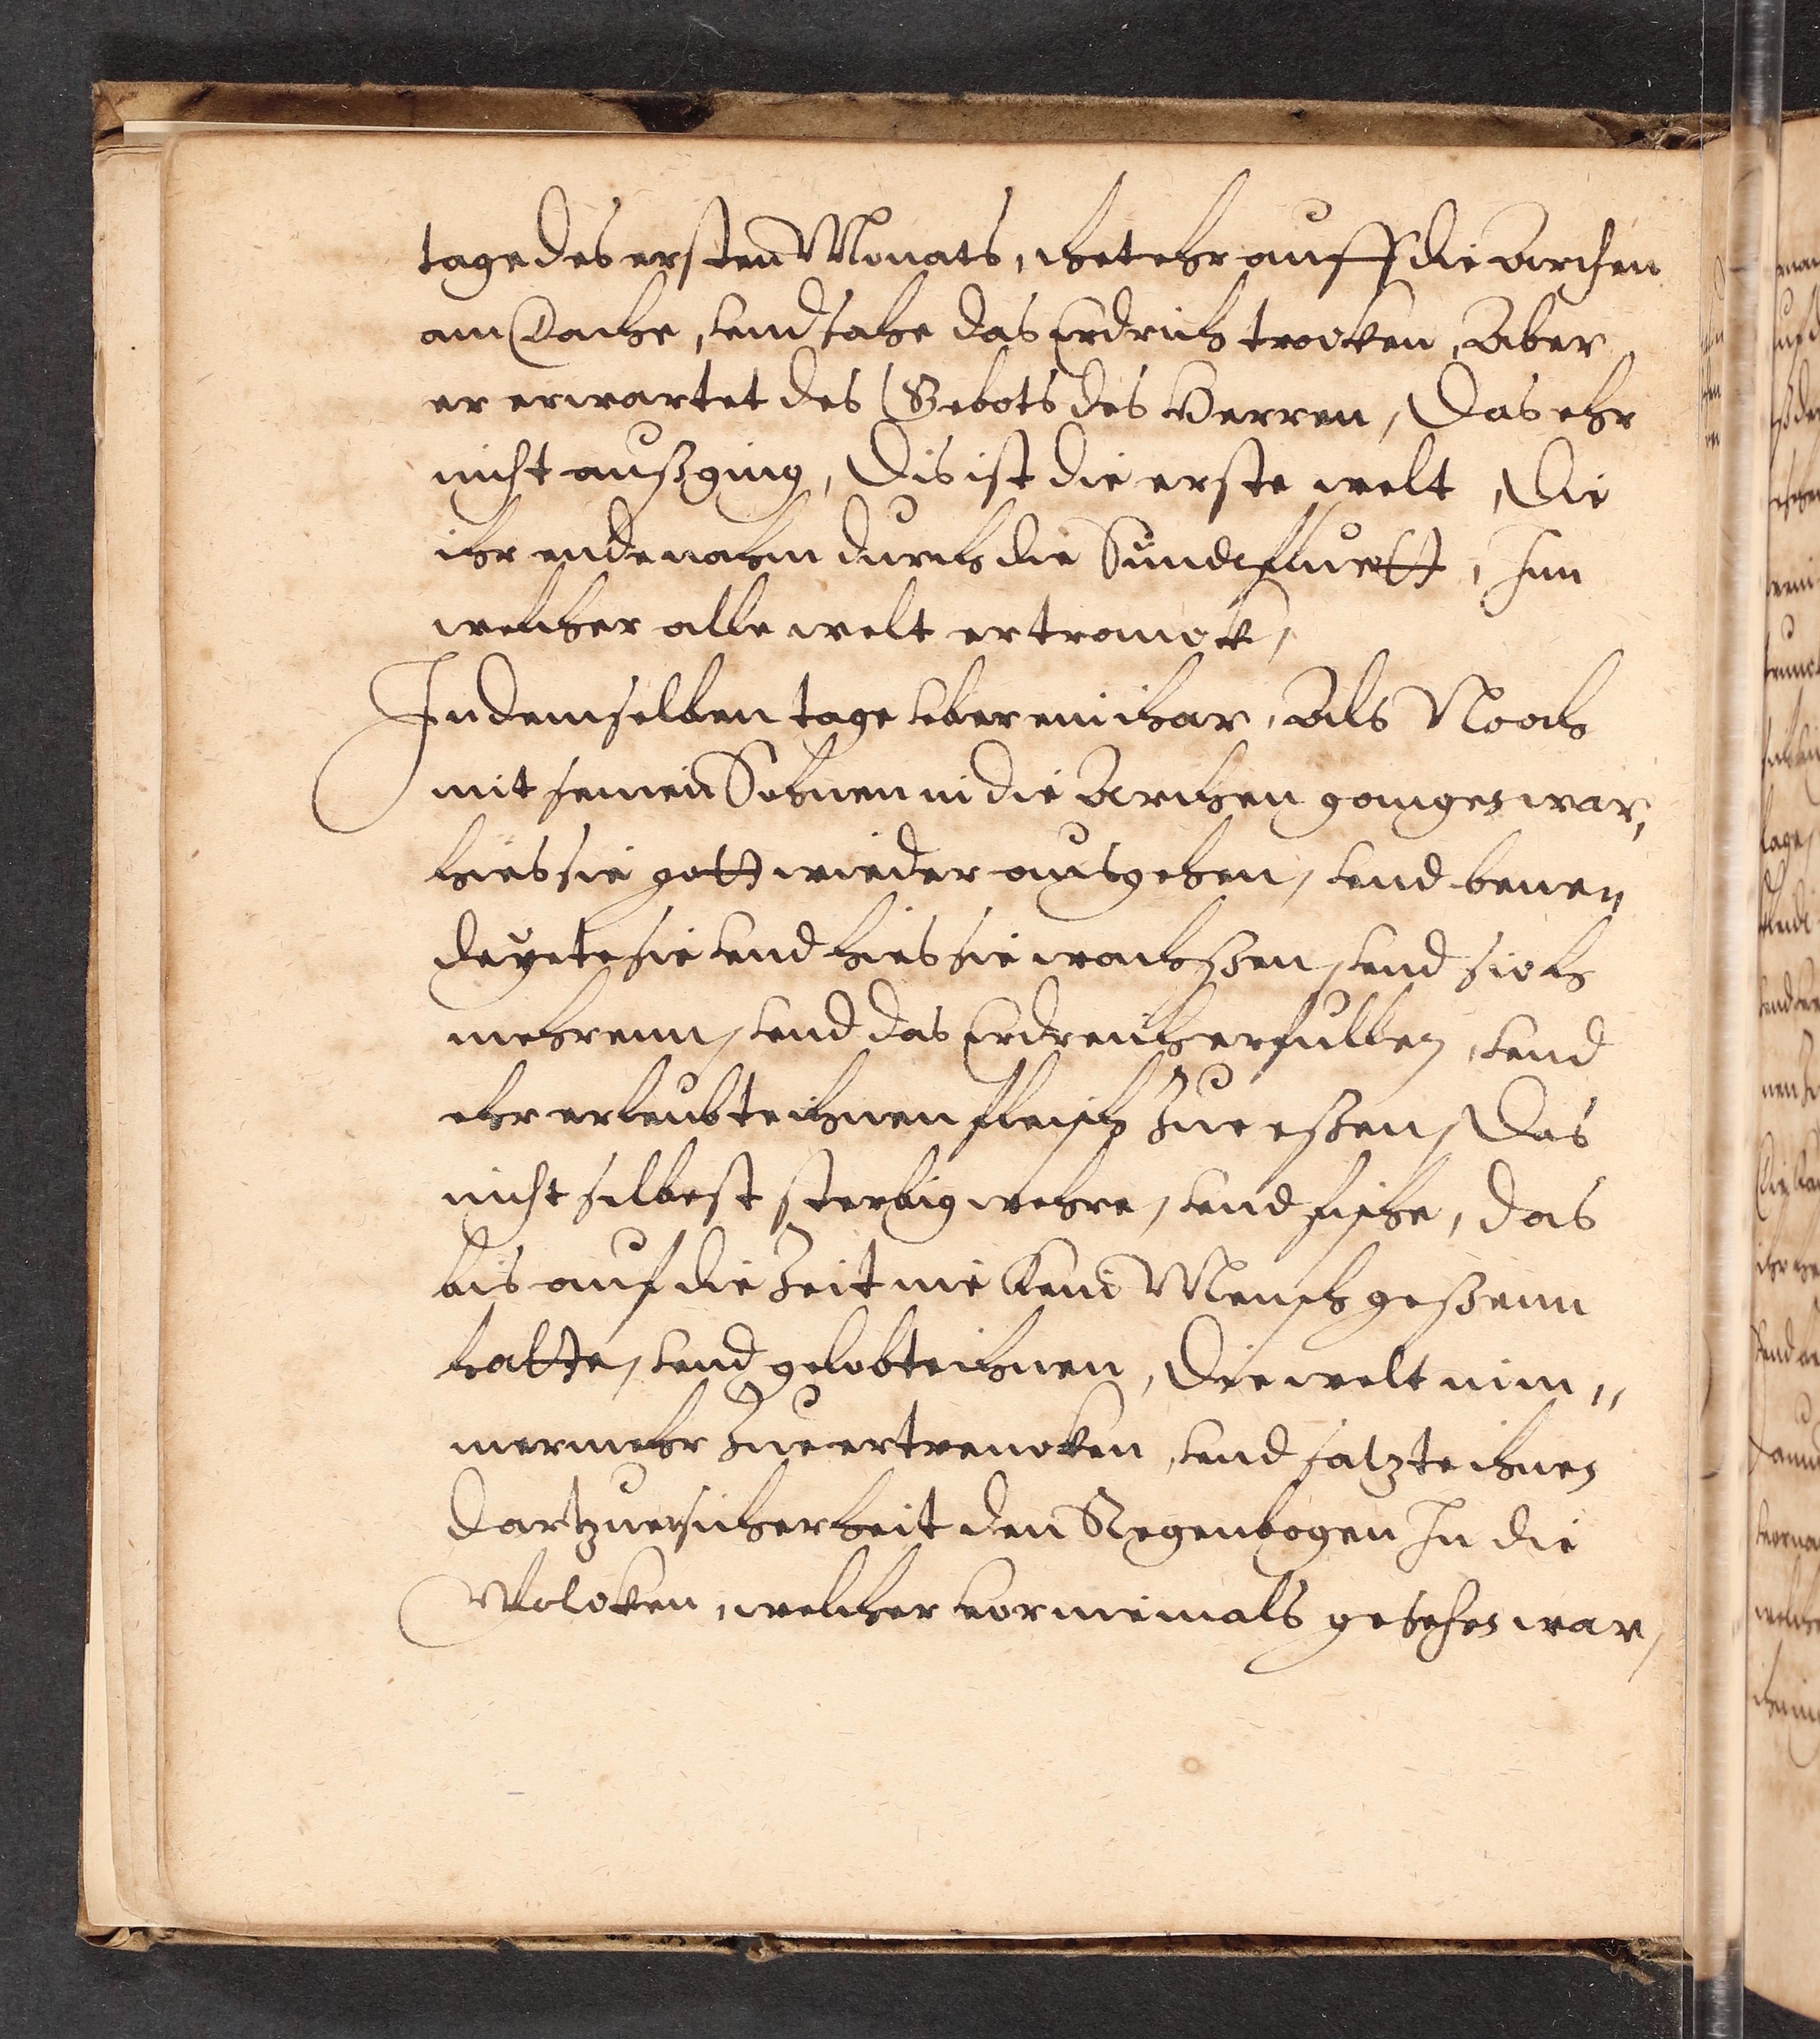 tage des ersten Monats, thet ehr auff die Archen
am Dache, und sahe das Erdrich trocken, Aber
er erwartet des Gebots des Herren, Das ehr
nicht außging, Dis ist die erste welt, Die
ihr ende nahm durch die Sundtfluett, Inn
welcher alle welt ertranck,
In demselben tage uber ein ihar, Als Noah
mit seinen Sohnen in die Archen gangen war,
hies sie gott wieder ausgehen, und bene„
deyete sie und hies sie wachssen, und sich
mehrenn, und das Erdreich erfullen, und
ehr erleubte ihnen fleisch zue essen, Das
nicht selbest sterbig wehre, und fische, das
bis auf die Zeit nie kein Mensch gessenn
hatte, und gelobte ihnen, Die welt nim„
mermehr zue ertrencken, und satzte ihnen
dartzue sicherheit den Regenbogen In die
Wolcken, welcher vor niemals gesehen war,